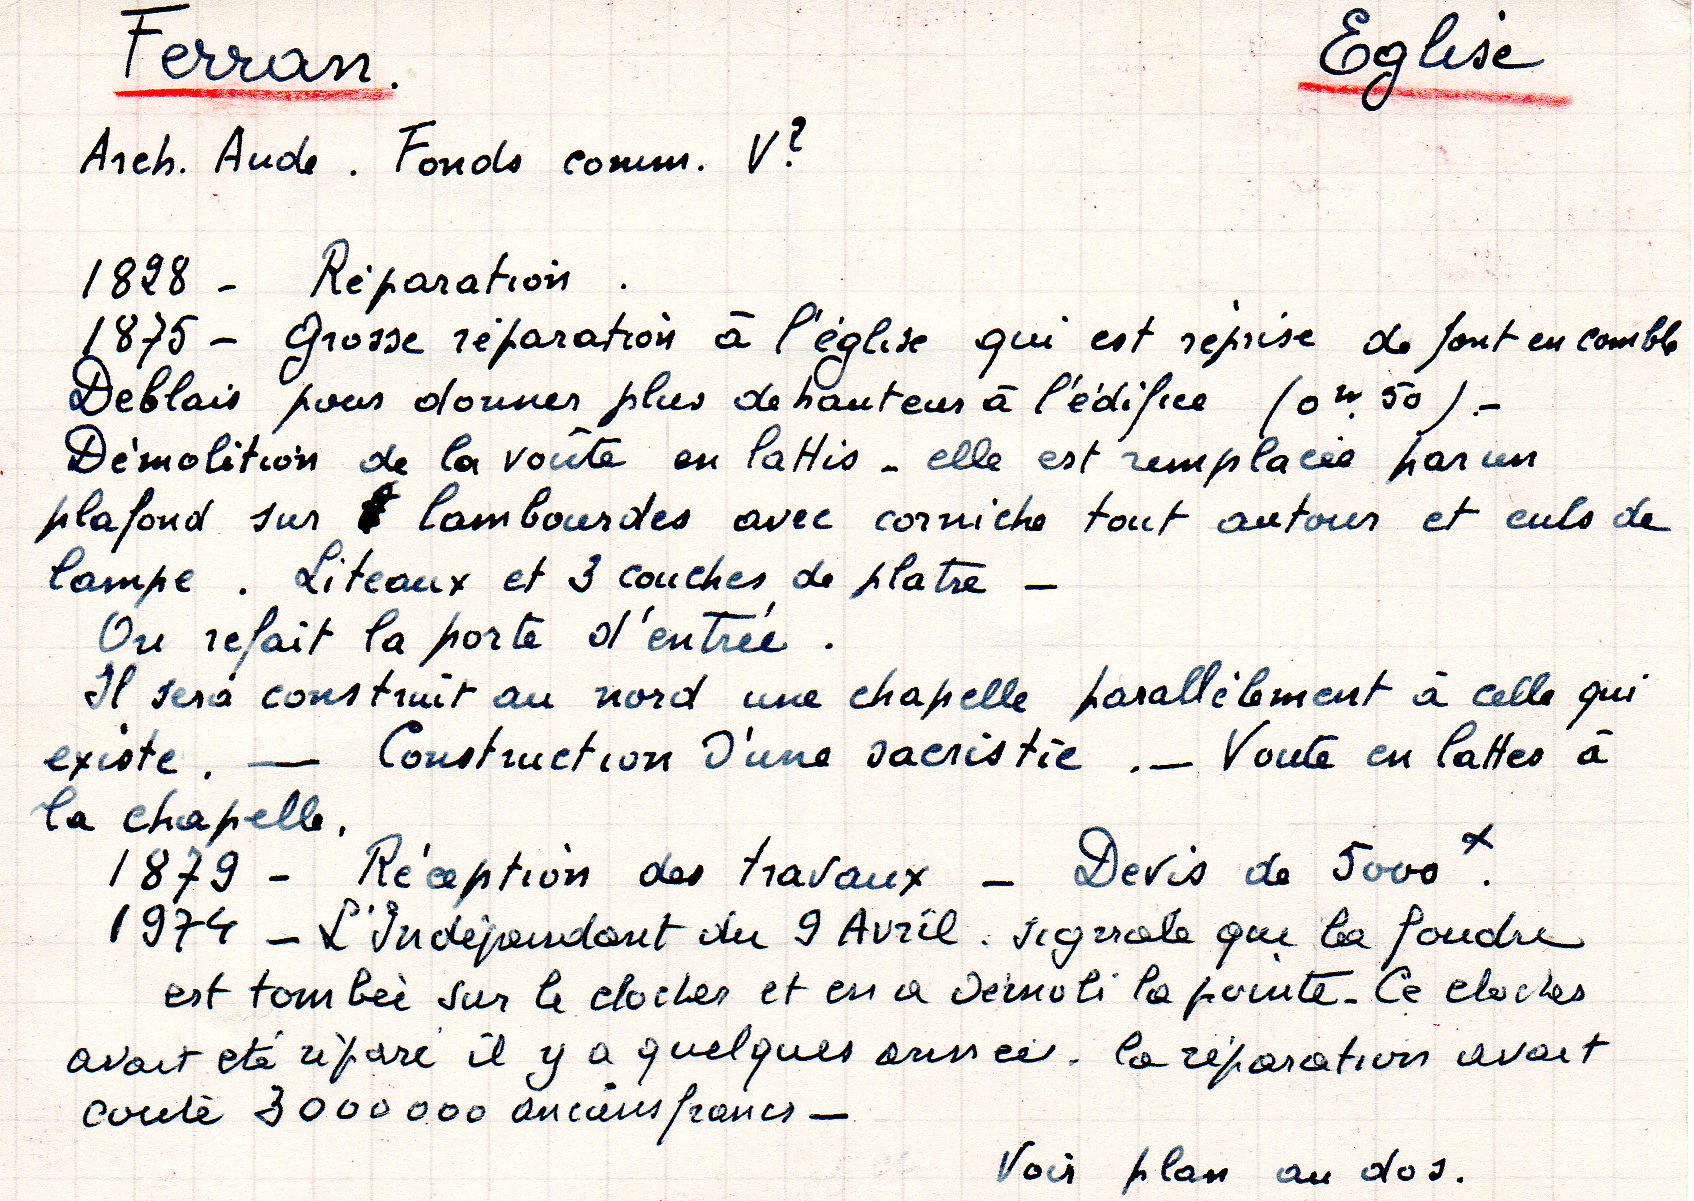 Ferran. Eglise
Arch. Aude. Fonds comm. V?
1828 - Réparation.
1875 - Grosse réparation à l'église qui est réprise de font en comble
Déblais pour donner plus de hauteur à l'édifice (0m.50).-
Démolition de la voûte en lattis - elle est remplacée par un
plafond sur lambourdes avec corniche tout autour et culs de
lampe. Liteaux et 3 couches de platre -
On refait la porte d'entrée.
Il sera construit au nord une chapelle parallèlement à celle qui
existe. — Construction d'une sacristie. — Voute en lattes à
la chapelle.
1879 - Réception des travaux - Devis de 5000 f.
1974 - L'Indépendant du 9 Avril. signale que la foudre
est tombée sur le clocher et en a démoli la pointe - Ce clocher
avait été réparé il y a quelques années. la réparation avait
couté 3000000 anciens francs -
Voir plan au dos.